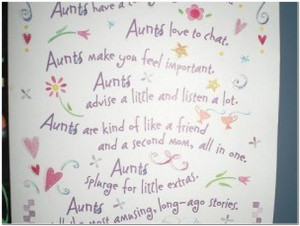 Aunts have a
Aunts love to chat.
Aunts make you feel important.
Aunts
advise a little and listen a lot.
Aunts are kind of like a friend
and a second mom, all in one.
Aunts
splurge for little extras.
Aunts
most amusing, long-ago stories.